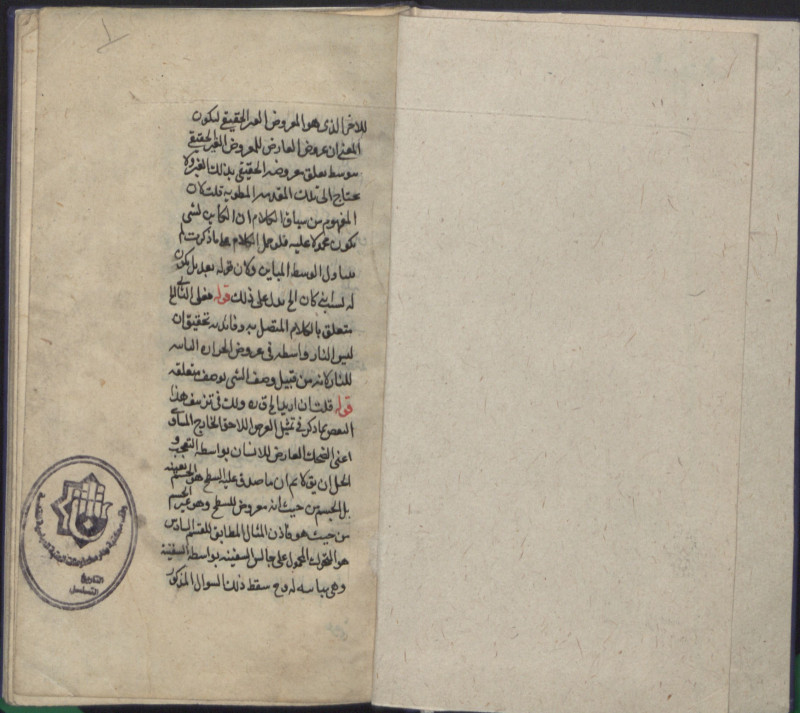 للاخر الذى هو المعروض الغير الحقيقى ليكون
المعنى ان عروض العارض للمعروض الغير الحقيقى
بتوسط تعلق معروضه الحقيقى بذلك الغير ولا
يحتاج الى تلك المقدمه المطويه قلت كان
المفهوم من سياق الكلام ان الكاين لشى
يكون محمولا عليه فلو حمل الكلام على ما ذكرت لم
يتناول الوسط المباين وكان قوله بعد بل يكون
له لسانى كان الخ يدل على ذلك قوله فعلى الثالث
متعلق بالكلام المتصل به وفائدته تحقيق ان
ليس النار واسطه فى عروض الحراره
للنار كانه من قبيل وصف الشى بوصف متعلقه
قوله قلت ان اريد الخ قده ولك فى تزييف هذا
البعض بما ذكر فى تمثيل العرض اللاحق الخارج المساوى
اعنى الضحك العارض للانسان بواسطه التعجب و
الحل ان يق لانم ان ما صدق عليه السطح هو الجسم بعينه
بل الجسم من حيث انه معروض للسطح وهو غير الجسم
من حيث هو فاذن المثال المطابق للقسم السادس
هو التحرك المحمول على جالس السفينه بواسطه السفينه
وهى مباينه له وح سقط ذلك السوال المذكور
التاريخ
التسلسل